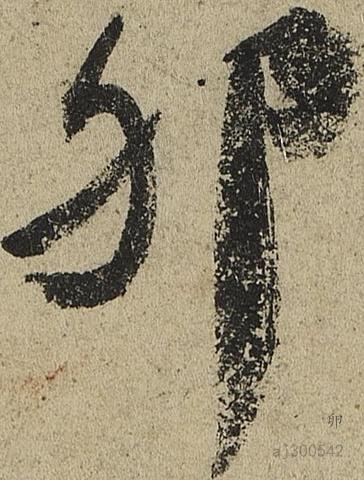 卯
卯
a1300542